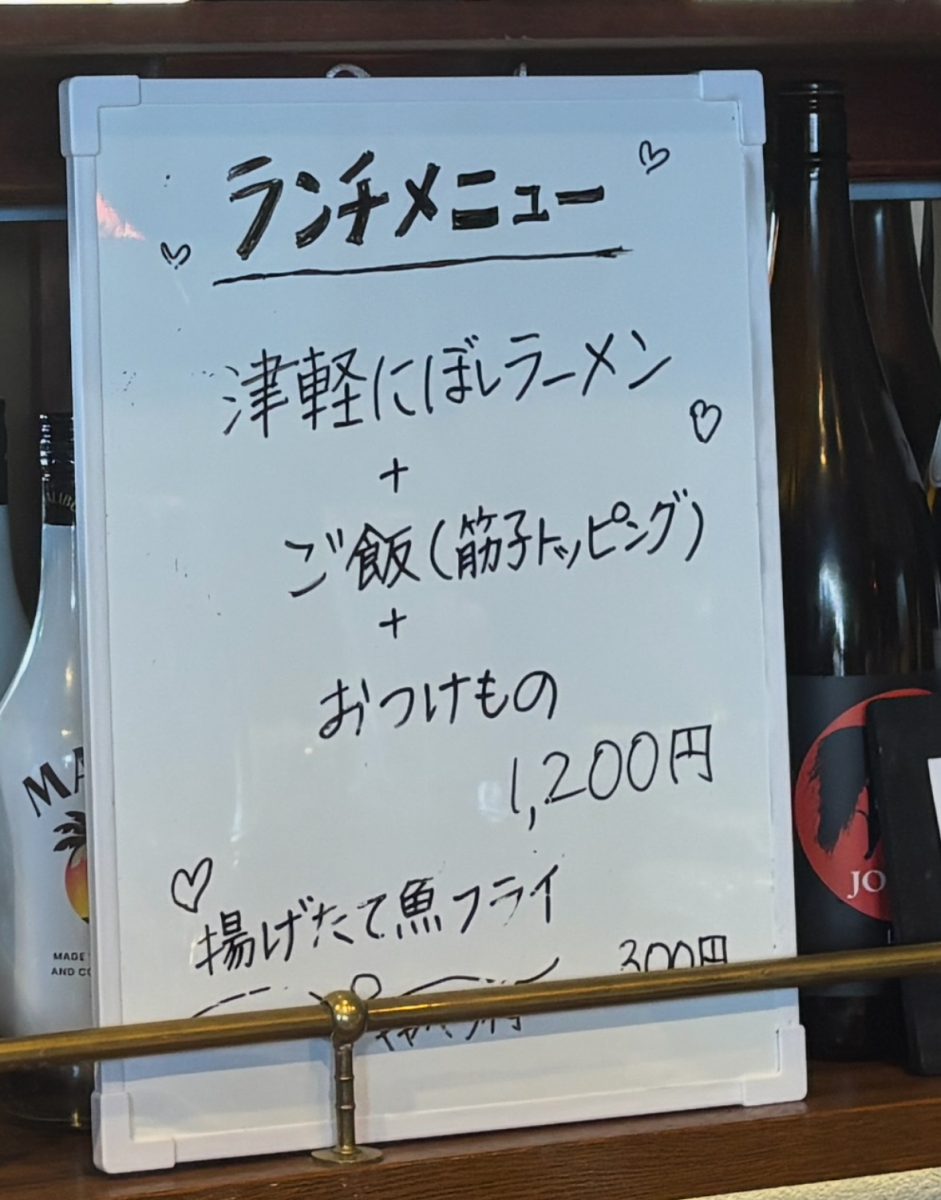 ランチメニュー
津軽にぼしラーメン
+
ご飯(筋子トッピング)
+
おつけもの
1,200円
揚げたて魚フライ
300円
MADE
AND
JO